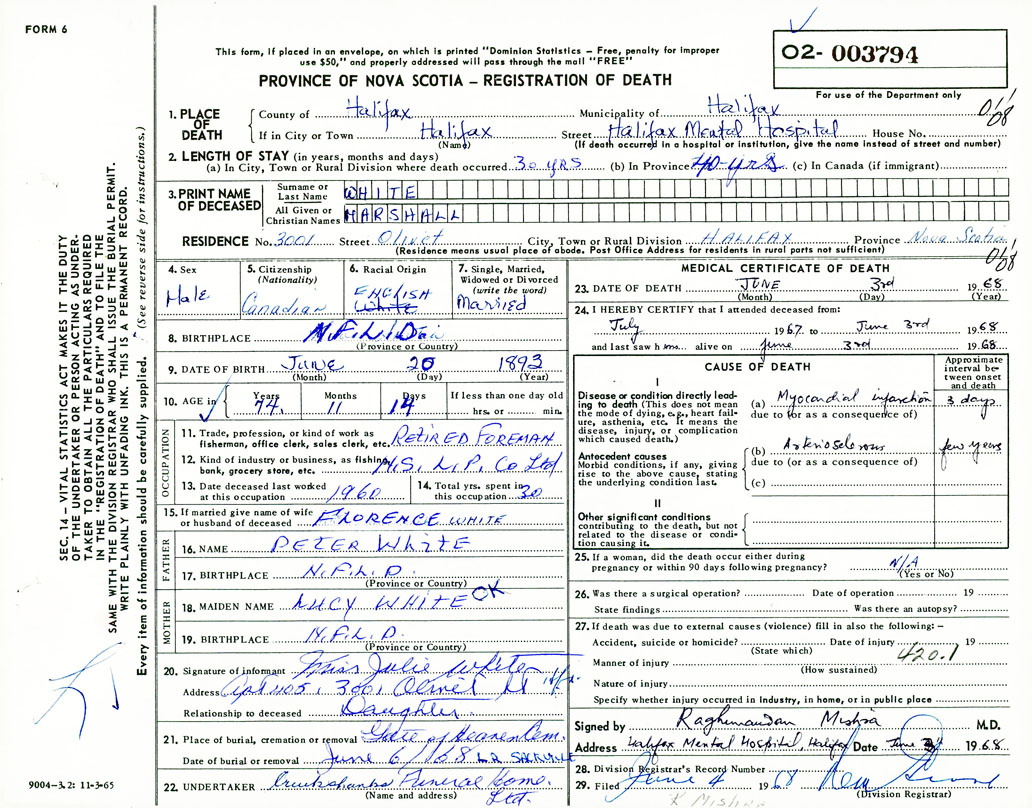 FORM 6
This form, if placed in an envelope, on which is printed "Dominion Statistics – Free, penalty for improper
use $50," and properly addressed will pass through the mail "FREE"
PROVINCE OF NOVA SCOTIA – REGISTRATION OF DEATH
O2- 003794
For use of the Department only
1. PLACE OF DEATH
County of Halifax Municipality of Halifax
If in City or Town Halifax Street Halifax Mental Hospital House No.
(Name) (If death occurred in a hospital or institution, give the name instead of street and number)
2. LENGTH OF STAY (in years, months and days)
(a) In City, Town or Rural Division where death occurred 30 YRS (b) In Province 40-yrs (c) In Canada (if immigrant)
3. PRINT NAME OF DECEASED
Surname or Last Name WHITE
All Given or Christian Names MARSHALL
RESIDENCE No. 3001 Street Olivet City, Town or Rural Division HALIFAX Province Nova Scotia
(Residence means usual place of abode. Post Office Address for residents in rural parts not sufficient)
4. Sex
Male
5. Citizenship
(Nationality)
Canadian
6. Racial Origin
ENGLISH
White
7. Single, Married,
Widowed or Divorced
(write the word)
Married
8. BIRTHPLACE
(Province or Country)
9. DATE OF BIRTH JUNE 20 1893
(Month) (Day) (Year)
10. AGE in
Years Months Days If less than one day old
74. 11 14 hrs. or min.
OCCUPATION
11. Trade, profession, or kind of work as
fisherman, office clerk, sales clerk, etc. RETIRED FOREMAN
12. Kind of industry or business, as fishing,
bank, grocery store, etc. N.S. L.P. Co Ltd
13. Date deceased last worked
at this occupation 1960
14. Total yrs. spent in
this occupation 30
15. If married give name of wife
or husband of deceased FLORENCE WHITE
FATHER
16. NAME PETER WHITE
17. BIRTHPLACE N.F.L.D.
(Province or Country)
MOTHER
18. MAIDEN NAME LUCY WHITE OK
19. BIRTHPLACE N.F.L.D.
(Province or Country)
20. Signature of informant Miss Julie White
Address Apt 405, 3001 Olivet St Hfx.
Relationship to deceased Daughter
21. Place of burial, cremation or removal Gate of Heaven Cem.
Date of burial or removal June 6/68 L.R. SACKVILLE
22. UNDERTAKER Cruikshanks Funeral Home.
(Name and address) Ltd.
MEDICAL CERTIFICATE OF DEATH
23. DATE OF DEATH JUNE 3rd 1968
(Month) (Day) (Year)
24. I HEREBY CERTIFY that I attended deceased from:
July 1967. to June 3rd 1968
and last saw him alive on June 3rd 1968.
CAUSE OF DEATH
Approximate
interval be-
tween onset
and death
I
Disease or condition directly lead-
ing to death (This does not mean
the mode of dying, e.g., heart fail-
ure, asthenia, etc. It means the
disease, injury, or complication
which caused death.)
(a) Myocardial infarction 3 days
due to (or as a consequence of)
Antecedent causes
Morbid conditions, if any, giving
rise to the above cause, stating
the underlying condition last.
(b) Arteriosclerosis few years
due to (or as a consequence of)
(c)
II
Other significant conditions
contributing to the death, but not
related to the disease or condi-
tion causing it.
25. If a woman, did the death occur either during
pregnancy or within 90 days following pregnancy? N/A
(Yes or No)
26. Was there a surgical operation? Date of operation 19
State findings Was there an autopsy?
27. If death was due to external causes (violence) fill in also the following: –
Accident, suicide or homicide? Date of injury 19
(State which) 420.1
Manner of injury
(How sustained)
Nature of injury
Specify whether injury occurred in industry, in home, or in public place
Signed by Raghunandan Mishra M.D.
Address Halifax Mental Hospital, Halifax Date June 3 1968.
28. Division Registrar's Record Number
29. Filed June 4 1968
(Division Registrar)
K Mishra
SEC. 14 – VITAL STATISTICS ACT MAKES IT THE DUTY
OF THE UNDERTAKER OR PERSON ACTING AS UNDER-
TAKER TO OBTAIN ALL THE PARTICULARS REQUIRED
IN THE "REGISTRATION OF DEATH" AND TO FILE THE
SAME WITH THE DIVISION REGISTRAR WHO SHALL ISSUE THE BURIAL PERMIT.
WRITE PLAINLY WITH UNFADING INK. THIS IS A PERMANENT RECORD.
Every item of information should be carefully supplied. (See reverse side for instructions.)
9004-3.2: 11-3-65